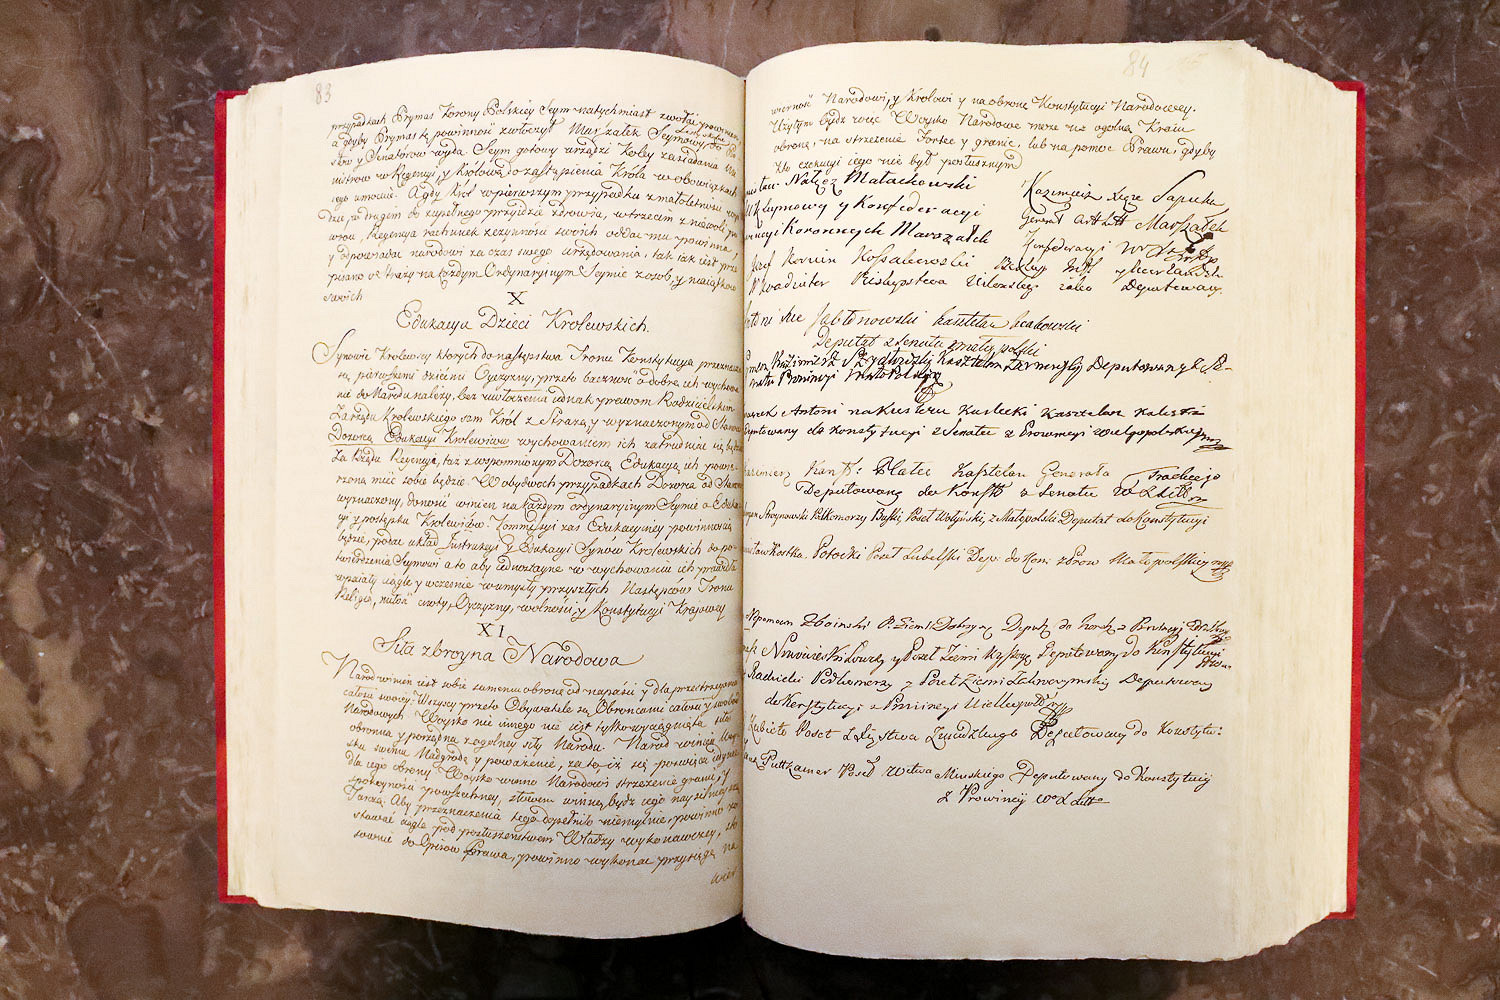 83
przypadkach Prymas Korony Polskiey Seym natychmiast zwołać powinien
a gdyby Prymas tę powinność zwłoczył Marszałek Seymowy
stów y Senatorów wyda. Seym gotowy urządzi Koley zasiadania
nistrów w Regencyi, y Królową do zastąpienia Króla w obowiązkach
iego umocuie. A gdy Król w pierwszym przypadku z małoletności
dzie, w drugim do zupełnego przyidzie zdrowia, w trzecim z niewoli
wróci, Regencya rachunek z czynności swoich oddać mu powinna,
y odpowiadać narodowi za czas swego urzędowania, tak iak iest prze
pisano o straży na każdym Ordynaryinym Seymie z osób, y maiątków
swoich
X
Edukacya Dzieci Krolewskich.
Synowie Krolewscy których do następstwa Tronu Konstytucya przeznacza
są pierwszemi dziećmi Oyczyzny, przeto baczność o dobre ich wychowa
nie do Narodu należy, bez uwłoczenia iednak prawom Rodzicielskim
Za rządu Krolewskiego sam Król z Strażą, y wyznaczonym od Stanów
Dozorcą Edukacyi Krolewiców wychowaniem ich zatrudniać się będzie
Za Rządu Regencyi, taż z wspomnionym Dozorcą Edukacyą ich powie-
rzoną mieć sobie będzie. W obydwóch przypadkach Dozorca od Stanów
wyznaczony, donosić winien na każdym ordynaryinym Seymie o Eduka
cyi y postępku Krolewiców. Kommissyi zaś Edukacyiney powinnością
będzie, podać układ Instrukcyi y Edukacyi Synów Krolewskich do po-
twierdzenia Seymowi a to aby iednostayne w wychowaniu ich prawidła
wpaiały ciągle y wcześnie w umysły przyszłych Następców Tronu
Religią, miłość cnoty, Oyczyzny, wolności, y Konstytucyi Kraiowey
XI
Siła zbroyna Narodowa
Naród winien iest sobie samemu obronę od napaści y dla przestrzegania
całości swoiey. Wszyscy przeto Obywatele są Obrońcami całości y swobód
Narodowych. Woysko nic innego nie iest tylko wyciągnięta siła
obronna y porządna z ogólney siły Narodu. Naród winien Woy-
sku swemu Nadgrodę y poważenie, za to iż się poświęca iedynie
dla iego obrony Woysko winno Narodowi strzeżenie granic, y
spokoyności powszechney, słowem winno być iego naysilnieyszą
Tarczą. Aby przeznaczenia tego dopełniło niemylnie, powinno zo
stawać ciągle pod posłuszeństwem Władzy wykonawczey, sto
sownie do Opisow Prawa, powinno wykonać przysięgę na
wier
84
wierność Narodowi, y Królowi y na obronę Konstytucyi Narodowey.
Użytym bydź więc Woysko Narodowe może na ogólną Kraiu
obronę, na strzeżenie Fortec y granic, lub na pomoc Prawu, gdyby
kto exekucyi iego nie był posłusznym
Nałęcz Małachowski
Seymowy y Konfederacyi
Koronnych Marszałek
Kazimierz Xżę Sapieha
Generał Art Litt Marszałek
Konfederacyi W X Litt
Korwin Kossakowski Biskup Infl. y
Koadiutor Biskupstwa Wilenskiego iako Deputowany.
Xże Jabłonowski kasztelan krakowski
Deputat z Senatu z małey polski
Kasztelan Deputowany z Se-
natu Prowincyi Małopolskiey
Antoni na Kutnu Kasztelan
Deputowany do Konstytucyi z Senatu z Prowincyi wielgopolskiey
Kazimierz Konst: Plater Kasztelan Generała Trockiego
Deputowany do Konst z Senatu W X Litt
Stroynowski Podkomorzy Buski Poseł Wołyński, z Małopolski Deputat do Konstytucyi
Kostka Potocki Poseł Lubelski Dep: do Kons z Prow Małopolskiey
Nepomucen Zboinski P. Ziemi Dobrzyn Deput do
y Poseł Ziemi Deputowany do Konstytucyi
Radzicki Podkomorzy y Poseł Ziemi Zakroczymskiey Deputowany
do Konstytucyi z Prowincyi Wielkopolskiey
Zabiełło Poseł z Xięstwa Zmudzkiego Deputowany do Konstytu:
Puttkamer Poseł Wdtwa Minskiego Deputowany do Konstytucyi
z Prowincyi W° X Litt°